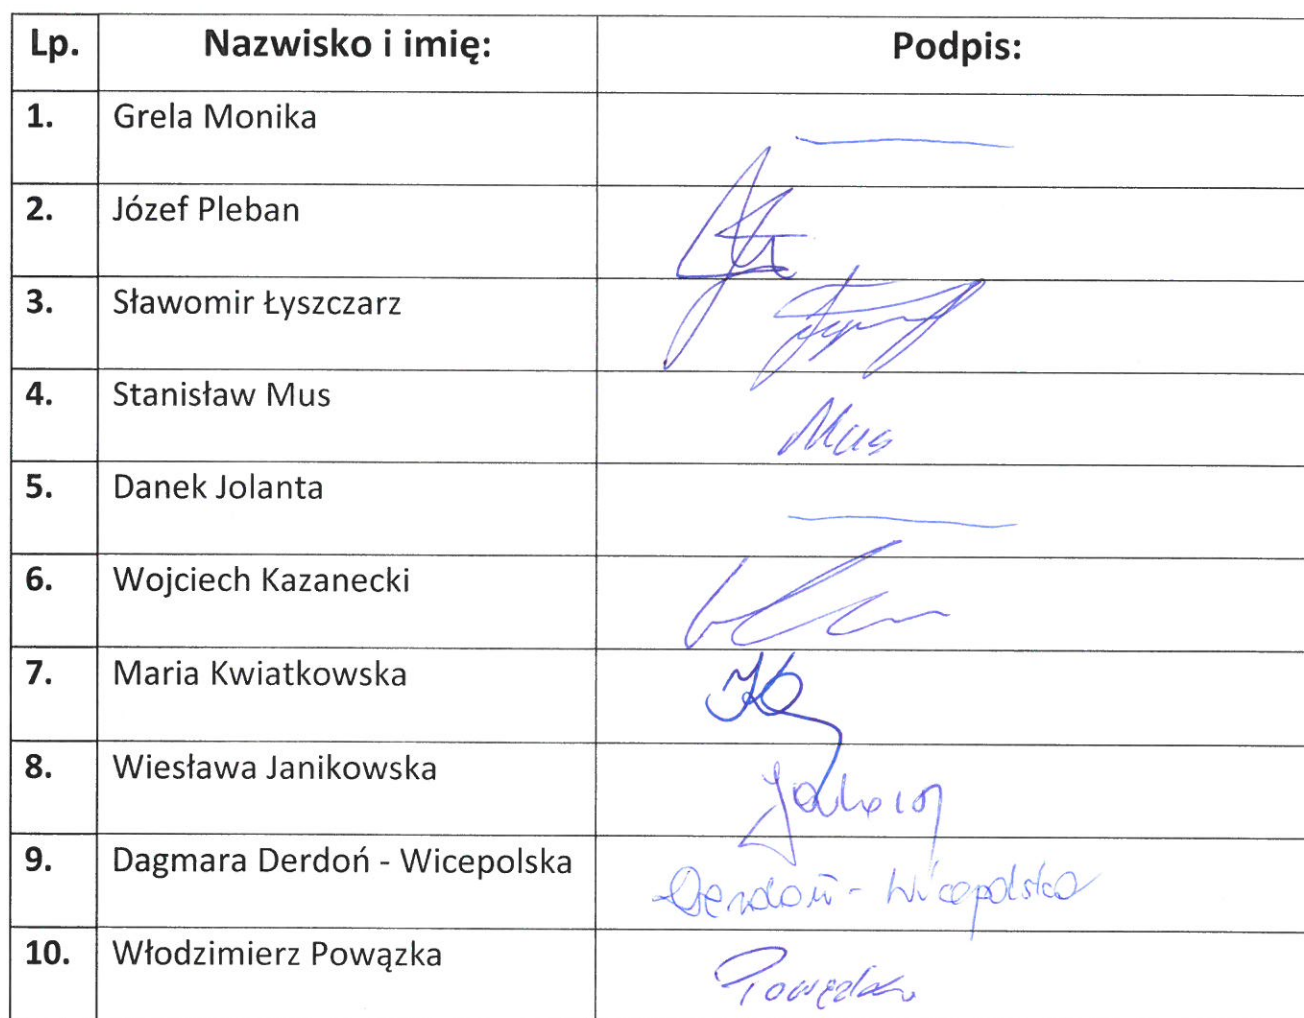 Lp. Nazwisko i imię: Podpis:
1. Grela Monika
2. Józef Pleban
3. Sławomir Łyszczarz
4. Stanisław Mus Mus
5. Danek Jolanta
6. Wojciech Kazanecki
7. Maria Kwiatkowska
8. Wiesława Janikowska
9. Dagmara Derdoń - Wicepolska Derdoń - Wicepolska
10. Włodzimierz Powązka